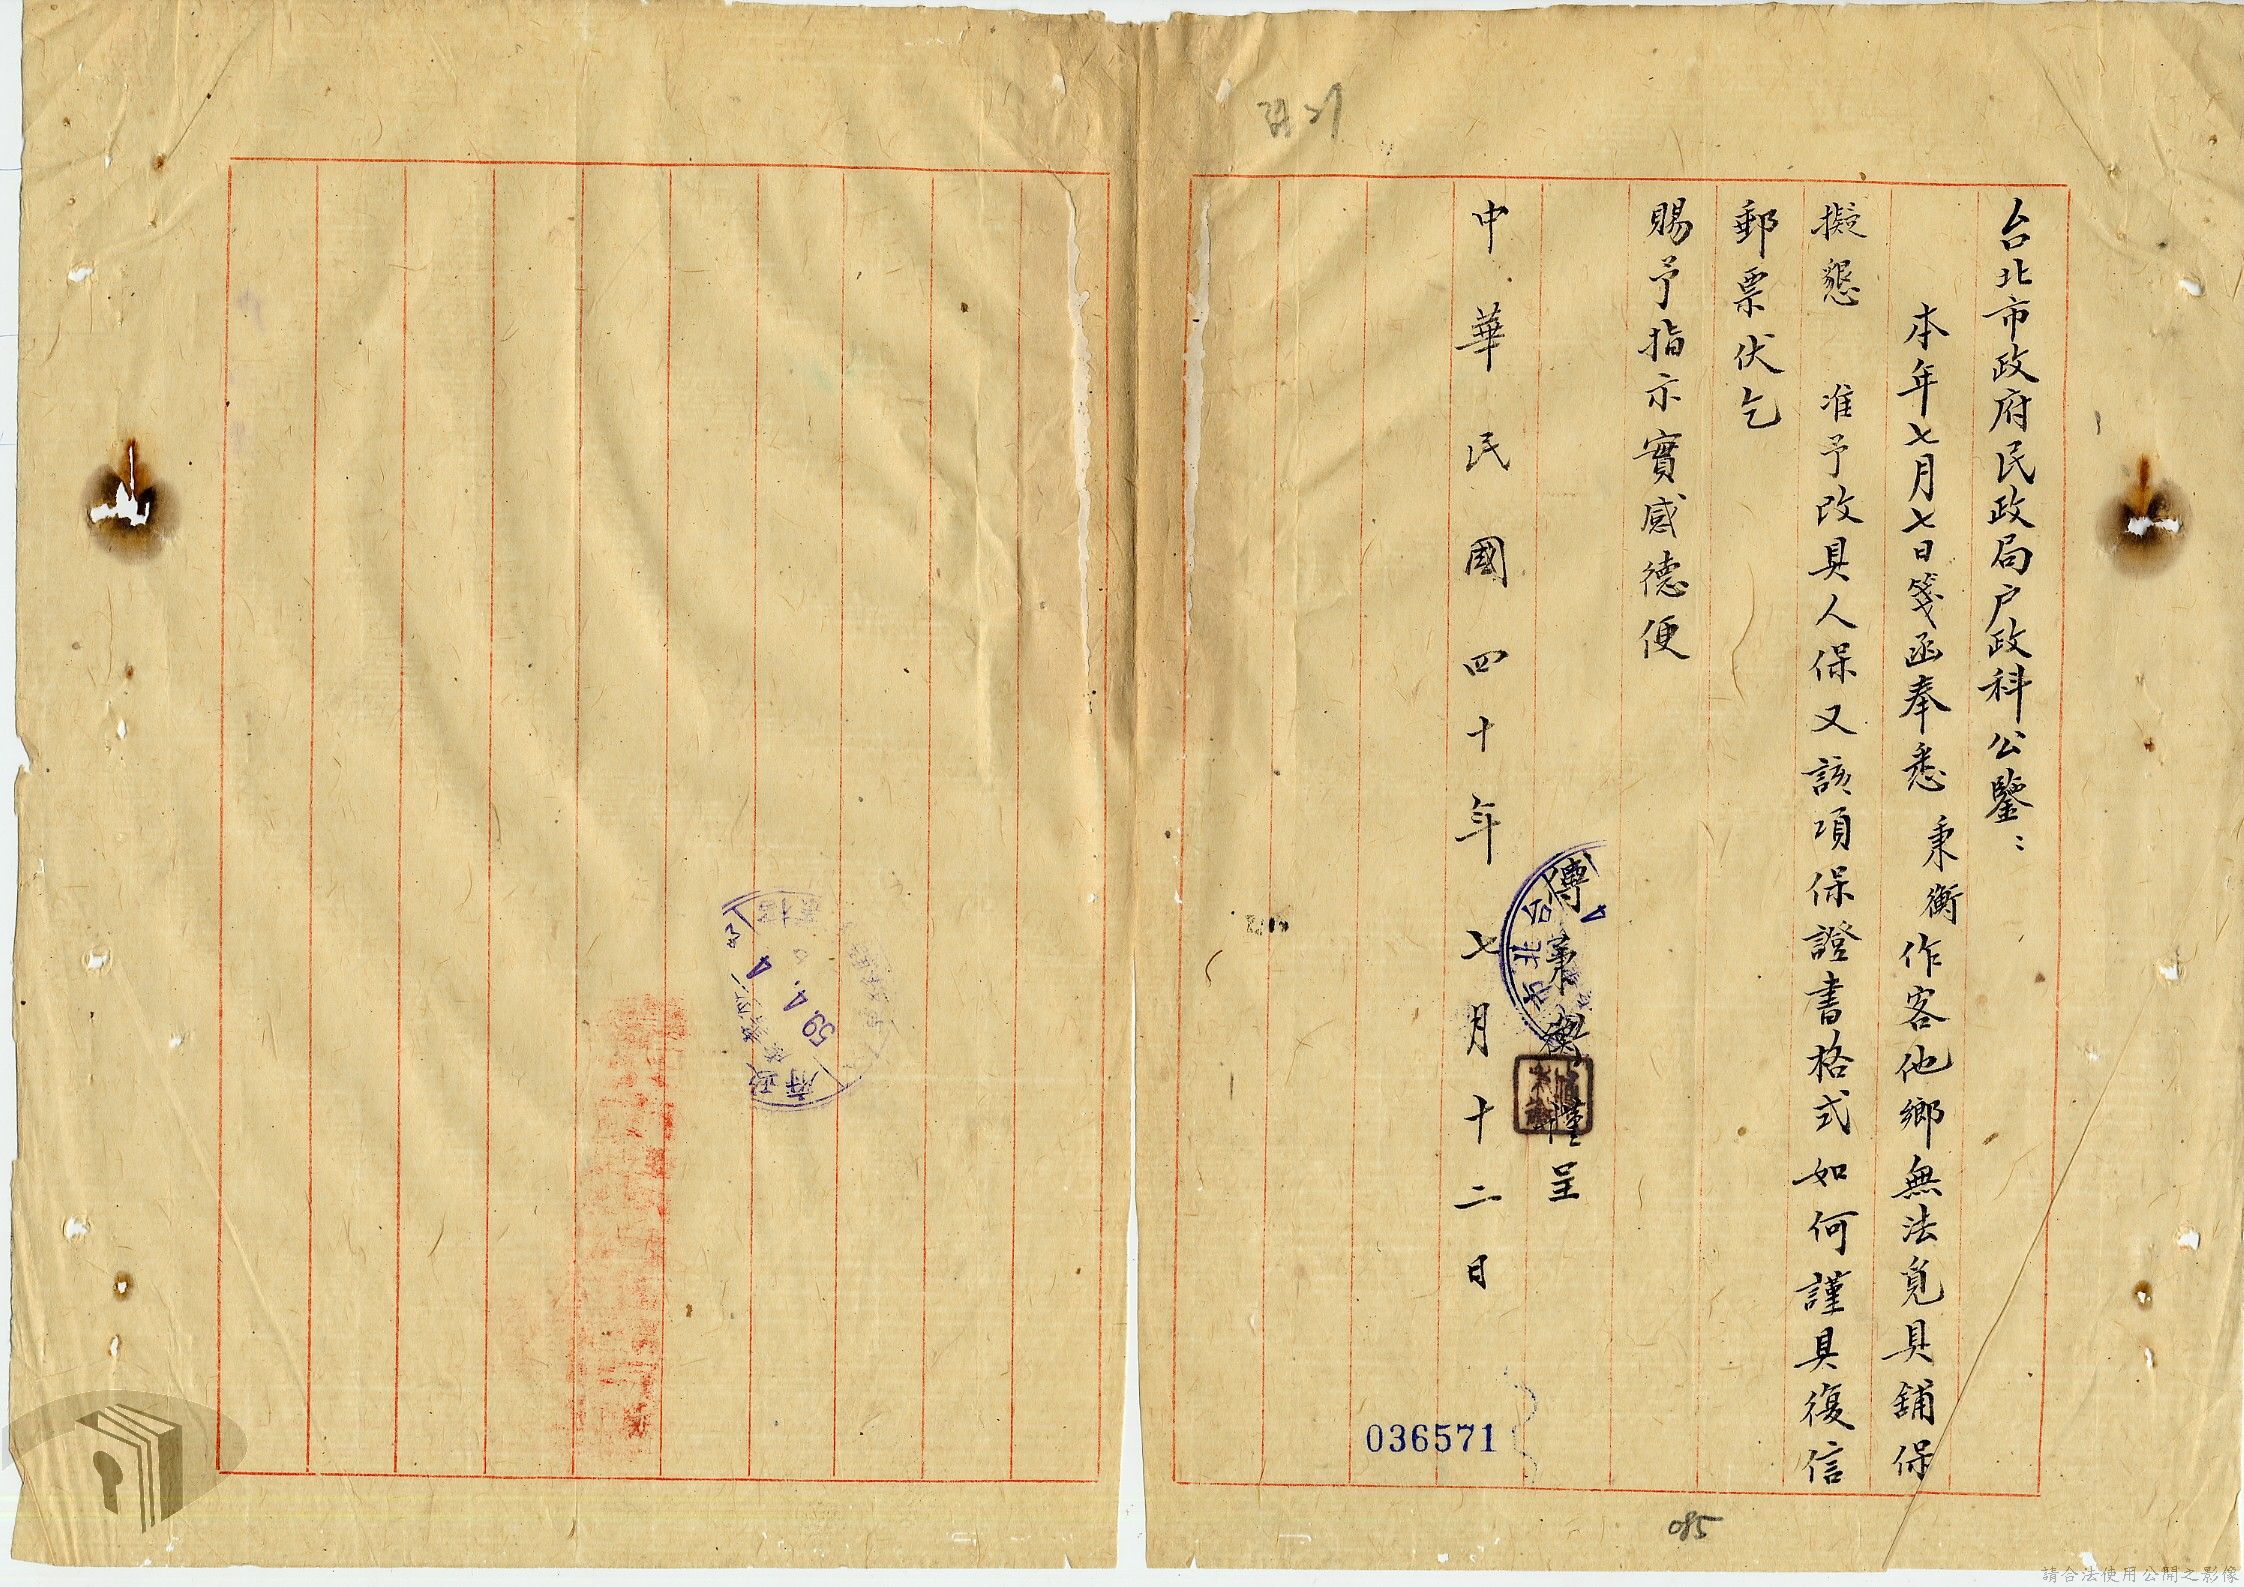 台北市政府民政局户政科公鑒：
本年七月七日箋函奉悉 秉衡作客他鄉無法覓具舖保
擬懇 准予改具人保又該項保證書格式如何謹具復信
郵票伏乞
賜予指示實感德便
傅秉衡謹呈
中華民國四十年七月十二日
036571
085
台北市
政府
59.4.4
請合法使用公開之影像